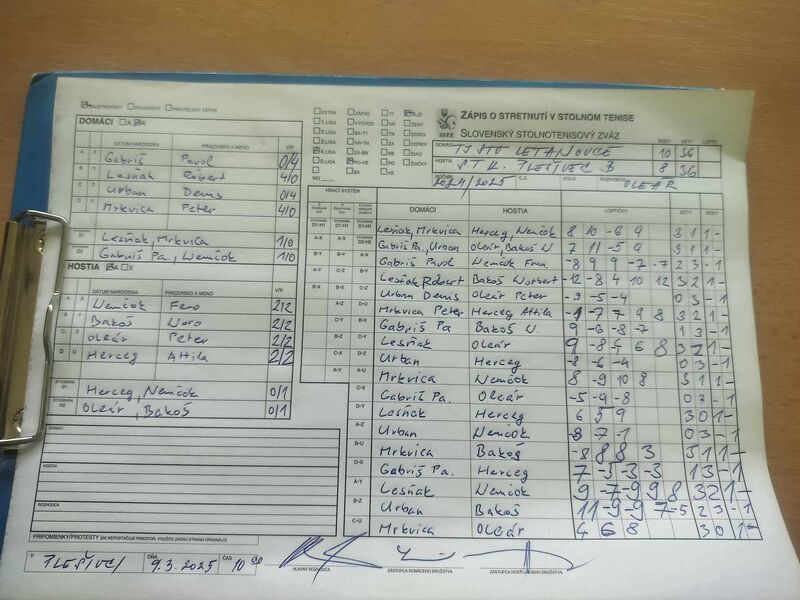 MAJSTROVSKÝ POHÁROVÝ PRIATEĽSKÝ ZÁPAS
DOMÁCI A X
DÁTUM NARODENIA PRIEZVISKO A MENO V/P
A X Gabriš Pavol 0/4
B Y Lesňak Robert 4/0
C Z Urban Denis 0/4
D U Mrkvica Peter 4/0
ŠTVORHRA D1 Lesňak, Mrkvica 1/0
D2 Gabriš Pa, Nemčok 1/0
HOSTIA A X
DÁTUM NARODENIA PRIEZVISKO A MENO V/P
A X Nemčok Fero 2/2
B Y Bakoš Noro 2/2
C Z Oleár Peter 2/2
D U Herceg Attila 2/2
ŠTVORHRA D1 Herceg, Nemčok 0/1
ŠTVORHRA H2 Oleár, Bakoš 0/1
DOMÁCI
HOSTIA
ROZHODCA
PRIPOMIENKY/PROTESTY (AK NEPOSTAČUJE PRIESTOR, POUŽITE ZADNÚ STRANU ORIGINÁLU)
V PLEŠIVCI DŇA 9.3.2025 ČAS 10 00
EXTRA ZÁPAD TT MUŽI
1. LIGA VÝCHOD NR ŽENY
2. LIGA BA-TT TN DORCI
3. LIGA NR-TN ZA DORKY
4. LIGA ZA-BB BB ŽIACI
5. LIGA PO-KE PO ŽIAČKY
MO BA KE
SSTZ
ZÁPIS O STRETNUTÍ V STOLNOM TENISE
SLOVENSKÝ STOLNOTENISOVÝ ZVÄZ
BODY SETY LOPTY
DOMÁCI TJ ŠTO LETANOVCE 10 36
HOSTIA STK PLEŠIVEC B 8 36
ROČNÍK 2024/2025 Č.Z. KOLO ROZHODCA OLEÁR
HRACÍ SYSTÉM DOMÁCI HOSTIA LOPTIČKY SETY BODY
Lesňak, Mrkvica Herceg, Nemčok 8 10 -6 9 3 1 1 -
Gabriš Pa, Urban Oleár, Bakoš N 7 11 -5 9 3 1 1 -
Gabriš Pavol Nemčok Fran. -8 9 9 -7 -7 2 3 - 1
Lesňak Robert Bakoš Norbert -12 -8 4 10 12 3 2 1 -
Urban Denis Oleár Peter -9 -5 -4 0 3 - 1
Mrkvica Peter Herceg Attila -7 7 9 8 3 2 1 -
Gabriš Pa Bakoš N. 9 -6 -8 -7 1 3 - 1
Lesňak Oleár 9 -8 -5 6 8 3 2 1 -
Urban Herceg -8 -6 -4 0 3 - 1
Mrkvica Nemčok 8 -9 10 8 3 1 1 -
Gabriš Pa. Oleár -5 -9 -8 0 3 - 1
Lesňak Herceg 6 5 9 3 0 1 -
Urban Nemčok -8 -7 -1 0 3 - 1
Mrkvica Bakoš -8 8 8 3 3 1 1 -
Gabriš Pa. Herceg 7 -5 -3 -3 1 3 - 1
Lesňak Nemčok 9 -7 -9 9 8 3 2 1 -
Urban Bakoš 11 -9 -9 7 -5 2 3 - 1
Mrkvica Oleár 4 6 8 3 0 1 -
HLAVNÝ ROZHODCA ZÁSTUPCA DOMÁCEHO DRUŽSTVA ZÁSTUPCA HOSŤUJÚCEHO DRUŽSTVA